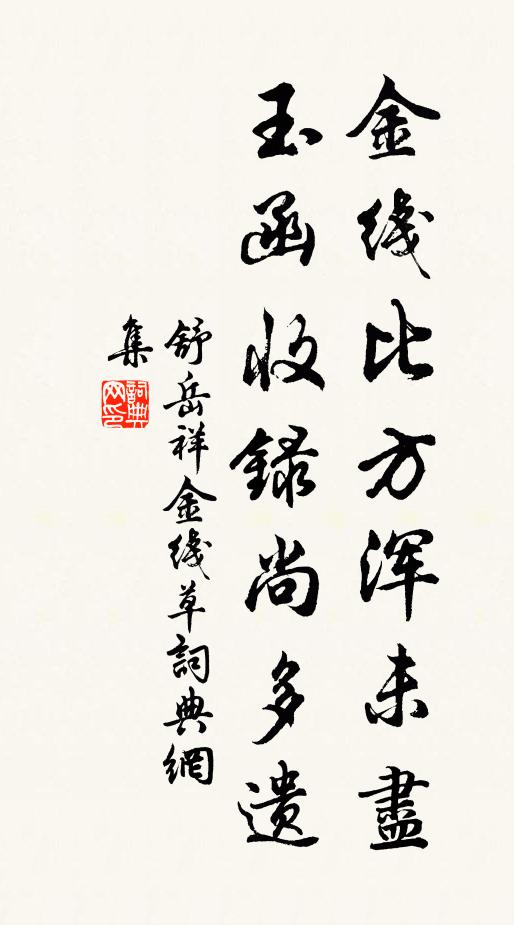 金綫比方浑未盡
玉函收録尚多遗
舒岳祥金綫草詞典網
集
詞典
网印